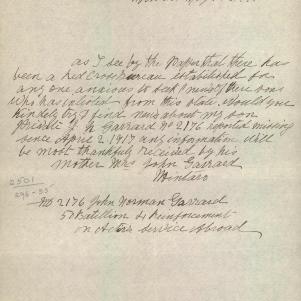 as I see by the Paper that there has
been a Red Cross Bureau established for
any one anxious to seek news of there sons
who has enlisted from this state. Would you
kindely try & find news about my son
Private J. N Garrard No 2176 reported missing
since April 2 1917 any information will
be most thankfully received by his
Mother Mrs John Garrard
Mintaro
2501
No 2176 John Norman Garrard
50 Batillion 4 Reinforcement
on Active Service Abroad